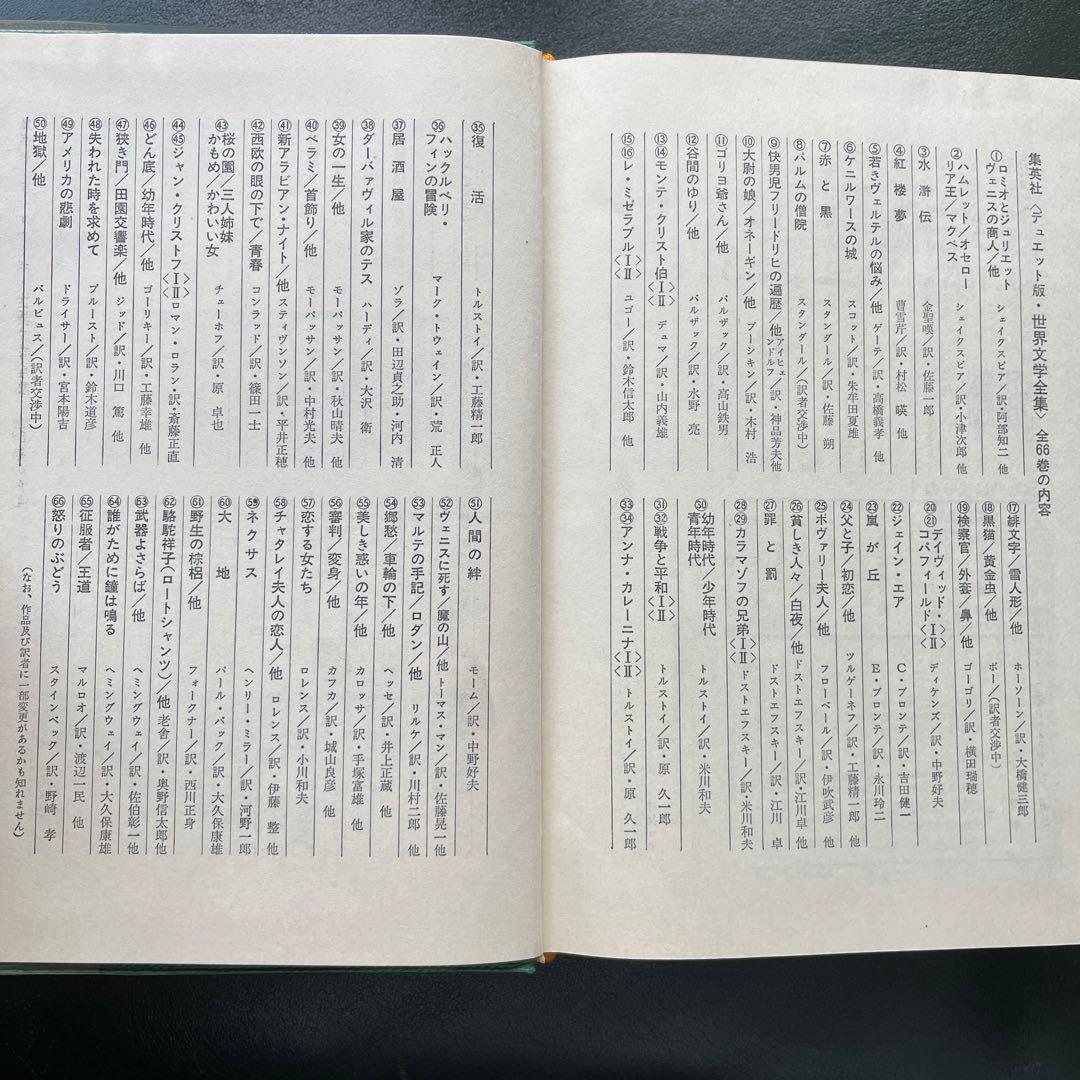 集英社〈デュエット版・世界文学全集〉全66巻の内容
①ロミオとジュリエット
ヴェニスの商人/他 シェイクスピア/訳・阿部知二 他
②ハムレット/オセロー
リア王/マクベス シェイクスピア/訳・小津次郎 他
③水滸伝 金聖嘆/訳・佐藤一郎
④紅楼夢 曹雪芹/訳・村松 暎 他
⑤若きヴェルテルの悩み/他 ゲーテ/訳・高橋義孝 他
⑥ケニルワースの城 スコット/訳・朱牟田夏雄
⑦赤と黒 スタンダール/訳・佐藤 朔
⑧パルムの僧院 スタンダール/(訳者交渉中)
⑨快男児フリードリヒの遍歴/他 アイヒェンドルフ/訳・神品芳夫他
⑩大尉の娘/オネーギン/他 プーシキン/訳・木村 浩
⑪ゴリヨ爺さん/他 バルザック/訳・高山鉄男
⑫谷間のゆり/他 バルザック/訳・水野 亮
⑬⑭モンテ・クリスト伯〈Ⅰ Ⅱ〉 デュマ/訳・山内義雄
⑮⑯レ・ミゼラブル〈Ⅰ Ⅱ〉 ユゴー/訳・鈴木信太郎 他
⑰緋文字/雪人形/他 ホーソーン/訳・大橋健三郎
⑱黒猫/黄金虫/他 ポー/(訳者交渉中)
⑲検察官/外套/鼻/他 ゴーゴリ/訳・横田瑞穂
⑳㉑デイヴィッド・
コパフィールド〈Ⅰ Ⅱ〉 ディケンズ/訳・中野好夫
㉒ジェイン・エア C・ブロンテ/訳・吉田健一
㉓嵐が丘 E・ブロンテ/訳・永川玲二
㉔父と子/初恋/他 ツルゲーネフ/訳・工藤精一郎 他
㉕ボヴァリー夫人/他 フローベール/訳・伊吹武彦 他
㉖貧しき人々/白夜/他 ドストエフスキー/訳・江川卓 他
㉗罪と罰 ドストエフスキー/訳・江川 卓
㉘㉙カラマゾフの兄弟〈Ⅰ Ⅱ〉 ドストエフスキー/訳・米川和夫
㉚幼年時代/少年時代
青年時代 トルストイ/訳・米川和夫
㉛㉜戦争と平和〈Ⅰ Ⅱ〉 トルストイ/訳・原 久一郎
㉝㉞アンナ・カレーニナ〈Ⅰ Ⅱ〉 トルストイ/訳・原 久一郎
㉟復活 トルストイ/訳・工藤精一郎
㊱ハックルベリ・
フィンの冒険 マーク・トウェイン/訳・荒 正人
㊲居酒屋 ゾラ/訳・田辺貞之助・河内 清
㊳ダーバァヴィル家のテス ハーディ/訳・大沢 衛
㊴女の一生/他 モーパッサン/訳・秋山晴夫 他
㊵ベラミ/首飾り/他 モーパッサン/訳・中村光夫 他
㊶新アラビアン・ナイト/他 スティヴンソン/訳・平井正穂
㊷西欧の眼の下で/青春 コンラッド/訳・篠田一士
㊸桜の園/三人姉妹
かもめ/かわいい女 チェーホフ/訳・原 卓也
㊹㊺ジャン・クリストフ〈Ⅰ Ⅱ〉 ロマン・ロラン・訳・斎藤正直
㊻どん底/幼年時代/他 ゴーリキー/訳・工藤幸雄 他
㊼狭き門/田園交響楽/他 ジッド/訳・川口 篤 他
㊽失われた時を求めて プルースト/訳・鈴木道彦
㊾アメリカの悲劇 ドライサー/訳・宮本陽吉
㊿地獄/他 バルビュス/(訳者交渉中)
51人間の絆 モーム/訳・中野好夫
52ヴェニスに死す/魔の山/他 トーマス・マン/訳・佐藤晃一他
53マルテの手記/ロダン/他 リルケ/訳・川村二郎
54郷愁/車輪の下/他 ヘッセ/訳・井上正蔵 他
55美しき惑いの年/他 カロッサ/訳・手塚富雄 他
56審判/変身/他 カフカ/訳・城山良彦 他
57恋する女たち ロレンス/訳・小川和夫
58チャタレイ夫人の恋人/他 ロレンス/訳・伊藤 整 他
59ネクサス ヘンリー・ミラー/訳・河野一郎
60大地 パール・バック/訳・大久保康雄
61野生の棕梠/他 フォークナー/訳・西川正身
62駱駝祥子(ロートシャンツ)/他 老舎/訳・奥野信太郎他
63武器よさらば/他 ヘミングウェイ/訳・佐伯彰一他
64誰がために鐘は鳴る ヘミングウェイ/訳・大久保康雄
65征服者/王道 マルロオ/訳・渡辺一民 他
66怒りのぶどう スタインベック/訳・野崎 孝
(なお、作品及び訳者に一部変更があるかも知れません)